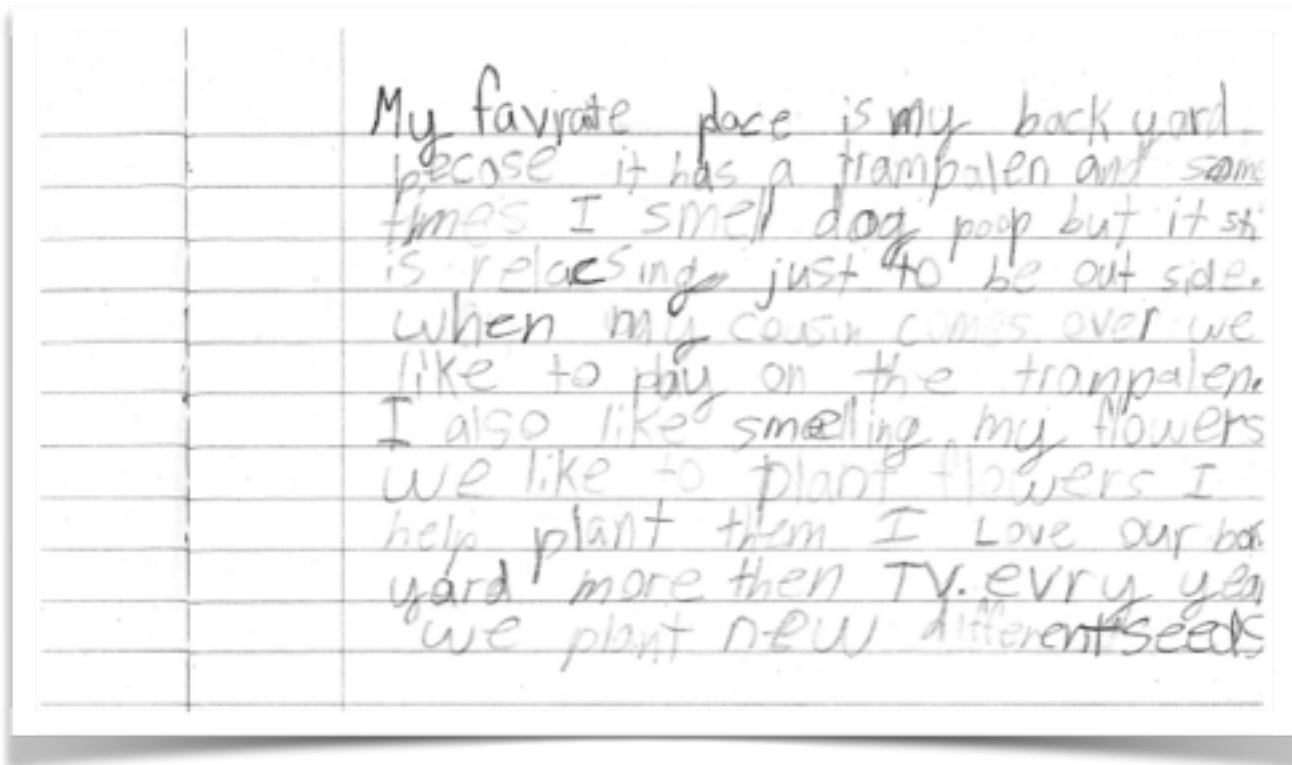 My favrate place is my back yard
becose it has a trampalen and some
times I smell dog poop but it
is relacsing just to be out side.
when my cousin comes over we
like to play on the tranpalen.
I also like smelling my flowers
we like to plant flowers I
help plant them I Love our
yard more then TV. evry year
we plant new different seeds